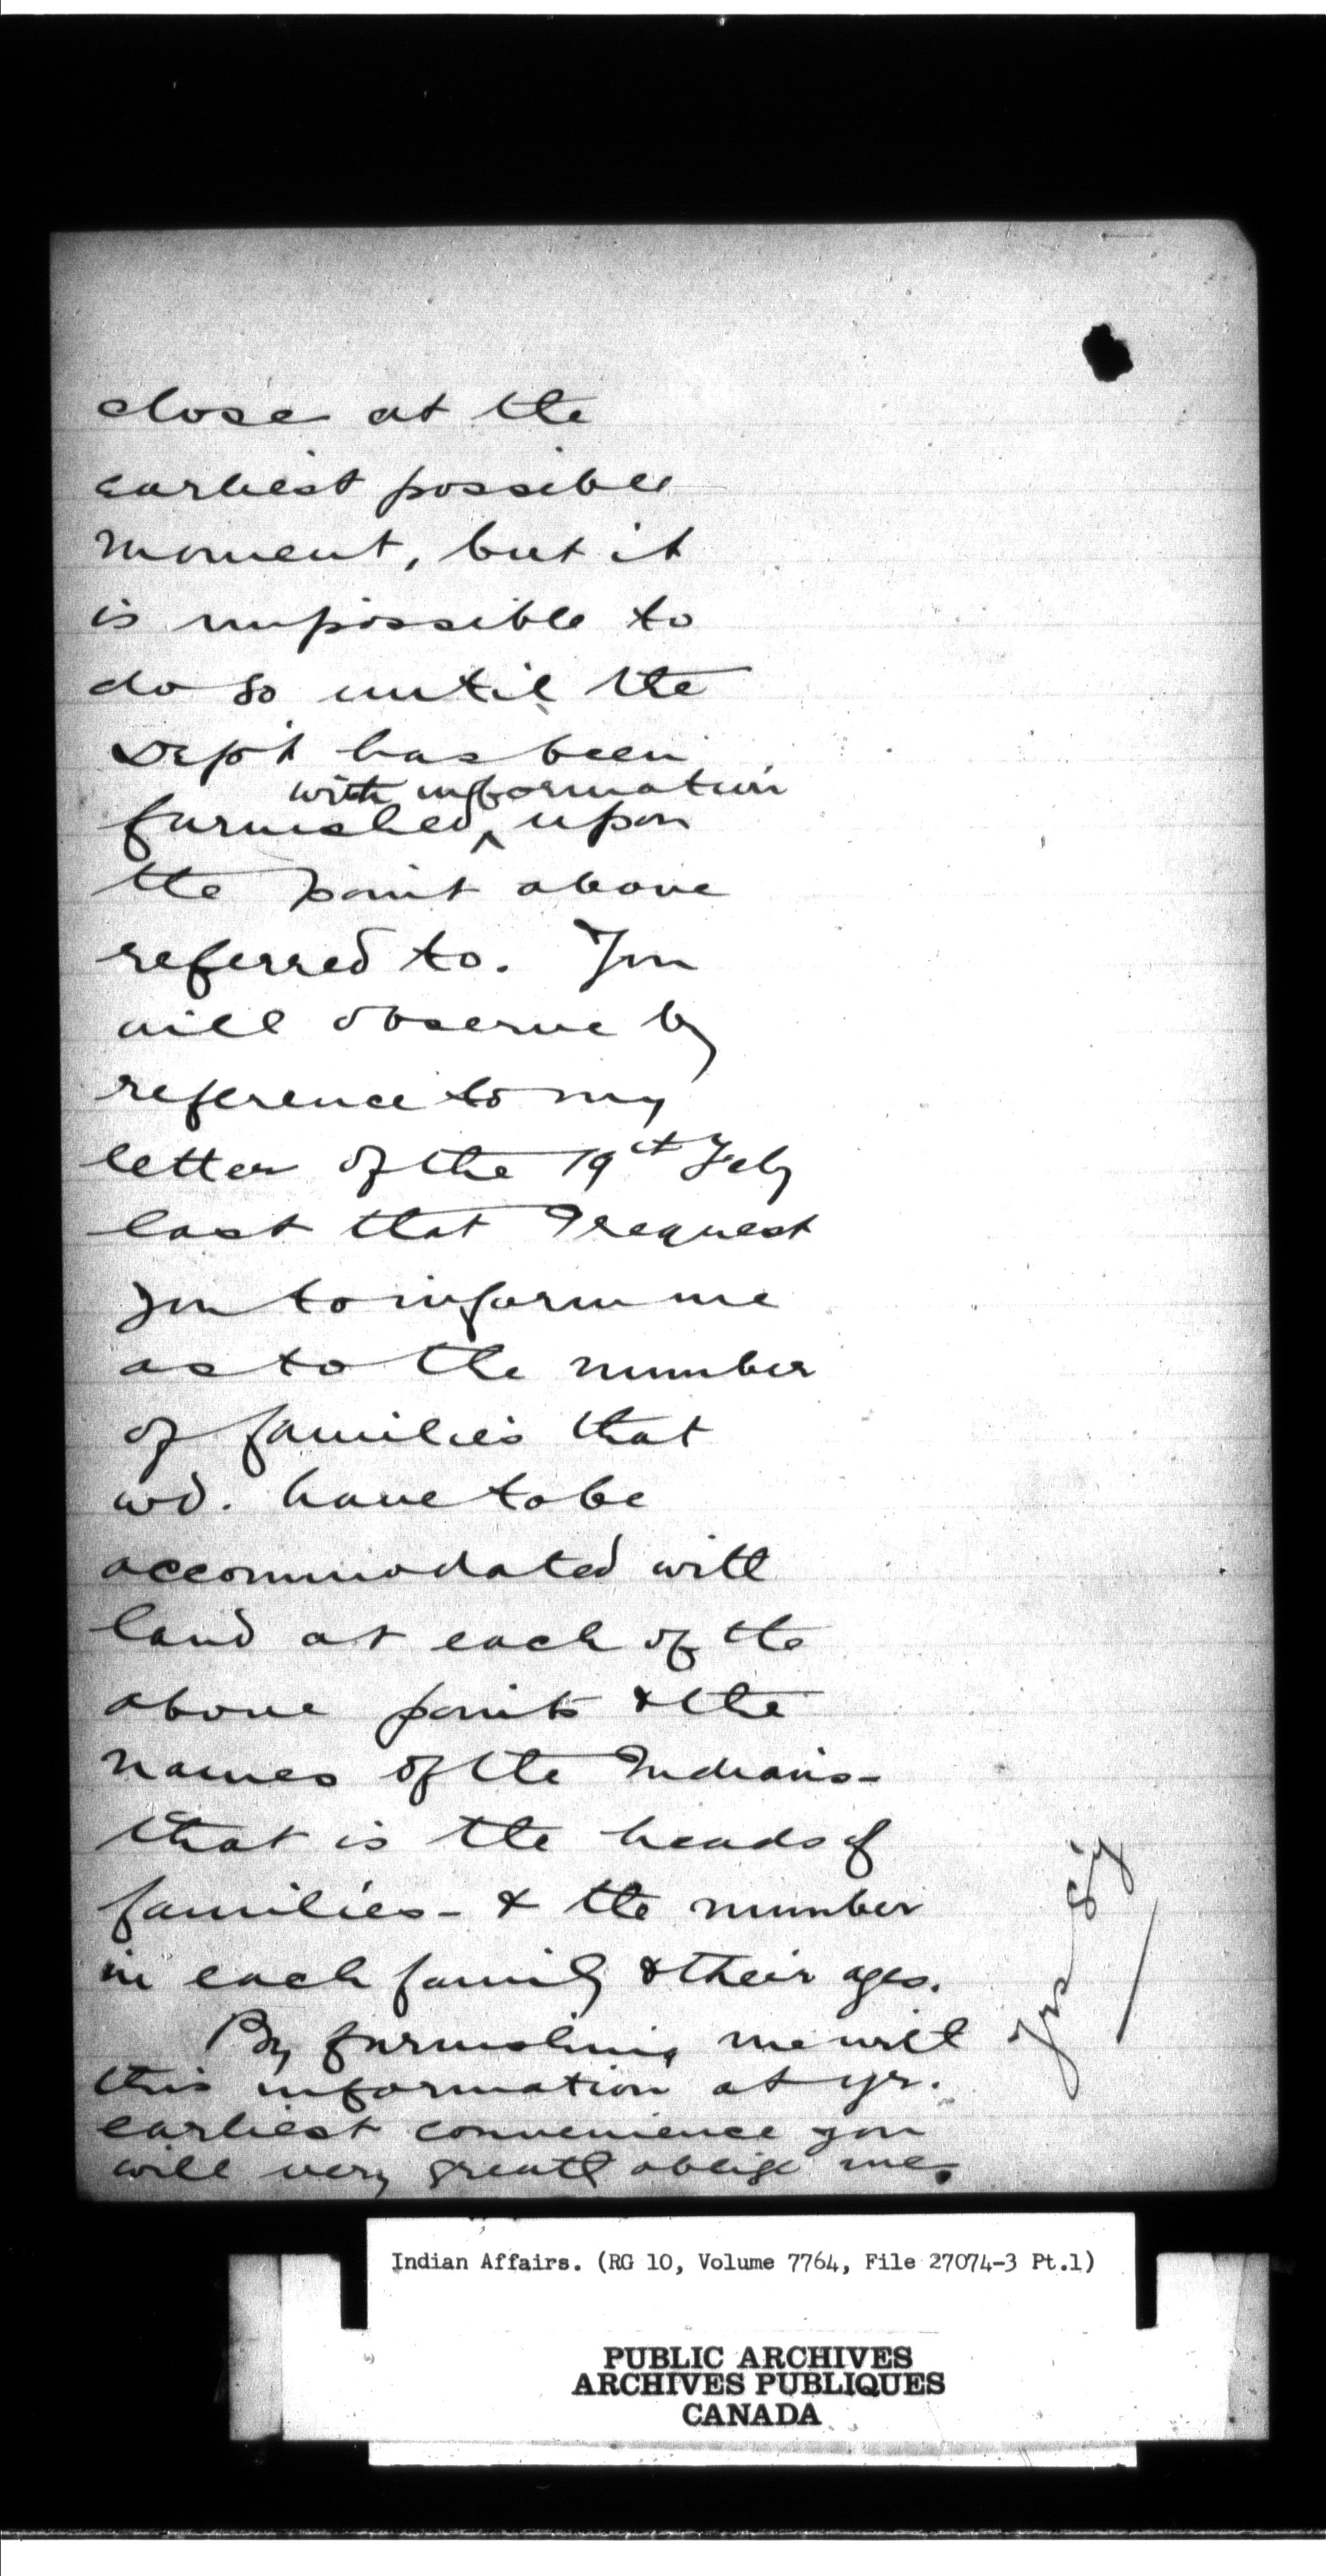 close at the
earliest possible
moment, but it
is impossible to
do so until the
Dep't has been
with information
furnished ^ upon
the point above
referred to. You
will observe by
reference to my
letter of the 19th Feby
last that I request
you to inform me
as to the number
of families that
wd. have to be
accommodated with
land at each of the
above points & the
names of the Indians-
that is the heads of
families- & the number
in each family & their ages.
By furnishing me with
this information at yr.
earliest convenience you
will very greatly oblige me.
Indian Affairs. (RG 10, Volume 7764, File 27074-3 Pt.1)
PUBLIC ARCHIVES
ARCHIVES PUBLIQUES
CANADA